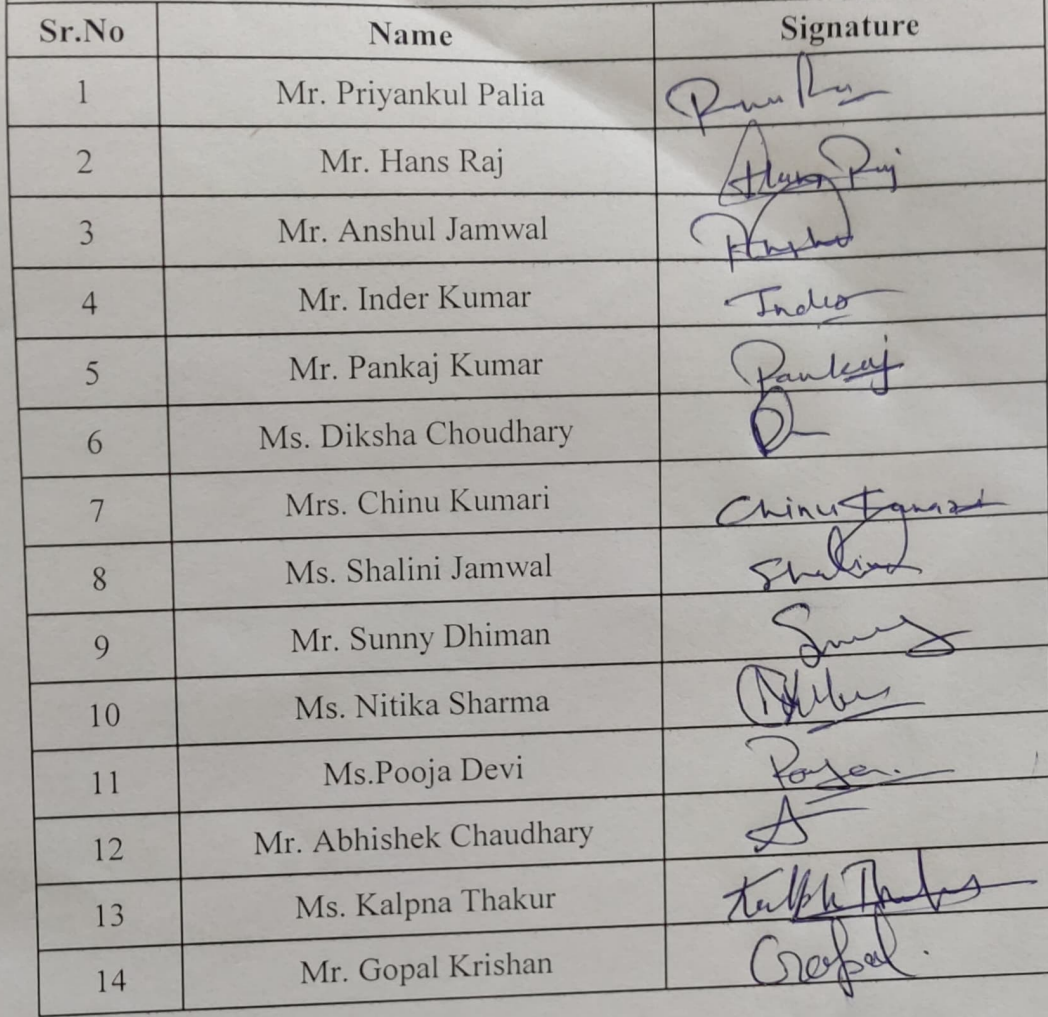 Sr.No Name Signature
1 Mr. Priyankul Palia
2 Mr. Hans Raj Hans Raj
3 Mr. Anshul Jamwal
4 Mr. Inder Kumar Inder
5 Mr. Pankaj Kumar Pankaj
6 Ms. Diksha Choudhary
7 Mrs. Chinu Kumari Chinu Kumari
8 Ms. Shalini Jamwal Shalini
9 Mr. Sunny Dhiman Sunny
10 Ms. Nitika Sharma
11 Ms.Pooja Devi Pooja
12 Mr. Abhishek Chaudhary
13 Ms. Kalpna Thakur Thakur
14 Mr. Gopal Krishan Gopal